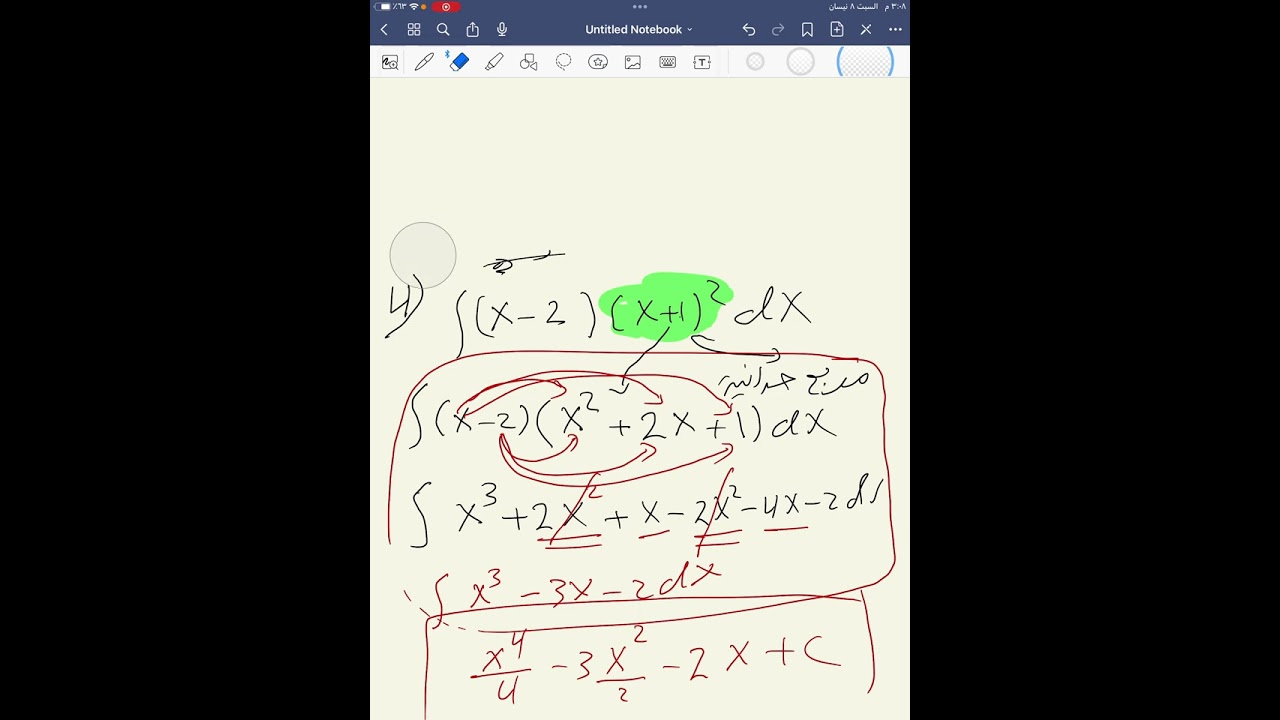 ٪٦٣ ٣:٠٨ م السبت ٨ نيسان
Untitled Notebook
T
4) ∫(x-2)(x+1)² dx
∫(x-2)(x²+2x+1)dx
∫ x³+2x²+x-2x²-4x-2dx
∫ x³-3x-2dx
x⁴/4 -3x²/2 -2x+C